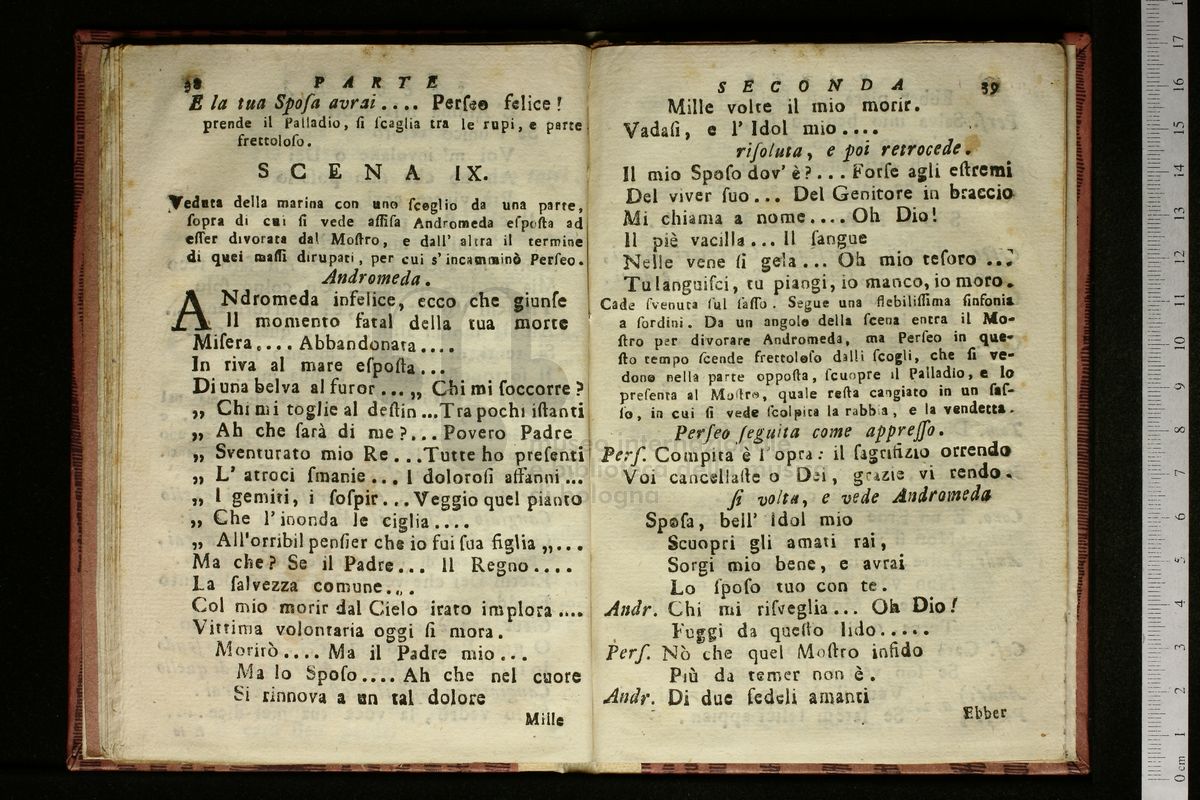 38 PARTE
E la tua Spoſa avrai.... Perſeo felice!
prende il Palladio, ſi ſcaglia tra le rupi, e parte
frettoloſo.
SCENA IX.
Veduta della marina con uno ſcoglio da una parte,
ſopra di cui ſi vede aſſiſa Andromeda eſpoſta ad
eſſer divorata dal Moſtro, e dall' altra il termine
di quei maſſi dirupati, per cui s'incamminò Perſeo.
Andromeda.
ANdromeda infelice, ecco che giunſe
Il momento fatal della tua morte
Miſera.... Abbandonata....
In riva al mare eſpoſta...
Di una belva al furor...„ Chi mi ſoccorre?
„ Chi mi toglie al deſtin...Tra pochi iſtanti
„ Ah che ſarà di me?... Povero Padre
„ Sventurato mio Re...Tutte ho preſenti
„ L' atroci ſmanie... I doloroſi affanni...
„ I gemiti, i ſoſpir...Veggio quel pianto
„ Che l'inonda le ciglia....
„ All'orribil penſier che io fui ſua figlia „...
Ma che? Se il Padre... Il Regno....
La ſalvezza comune....
Col mio morir dal Cielo irato implora....
Vittima volontaria oggi ſi mora.
Morirò.... Ma il Padre mio...
Ma lo Spoſo.... Ah che nel cuore
Si rinnova a un tal dolore
Mille
SECONDA 39
Mille volte il mio morir.
Vadaſi, e l' Idol mio....
riſoluta, e poi retrocede.
Il mio Spoſo dov' è?... Forſe agli eſtremi
Del viver ſuo... Del Genitore in braccio
Mi chiama a nome.... Oh Dio!
Il piè vacilla... Il ſangue
Nelle vene ſi gela... Oh mio teſoro...
Tu languiſci, tu piangi, io manco, io moro.
Cade ſvenuta ſul ſaſſo. Segue una flebiliſſima ſinfonia
a ſordini. Da un angolo della ſcena entra il Mo-
ſtro per divorare Andromeda, ma Perſeo in que-
ſto tempo ſcende frettoloſo dalli ſcogli, che ſi ve-
dono nella parte oppoſta, ſcuopre il Palladio, e lo
preſenta al Moſtro, quale reſta cangiato in un ſaſ-
ſo, in cui ſi vede ſcolpita la rabbia, e la vendetta.
Perſeo ſeguita come appreſſo.
Perſ. Compita è l'opra: il ſagrifizio orrendo
Voi cancellaſte o Dei, grazie vi rendo.
ſi volta, e vede Andromeda
Spoſa, bell' Idol mio
Scuopri gli amati rai,
Sorgi mio bene, e avrai
Lo ſpoſo tuo con te.
Andr. Chi mi riſveglia... Oh Dio!
Fuggi da queſto lido.....
Perſ. Nò che quel Moſtro infido
Più da temer non è.
Andr. Di due fedeli amanti
Ebber